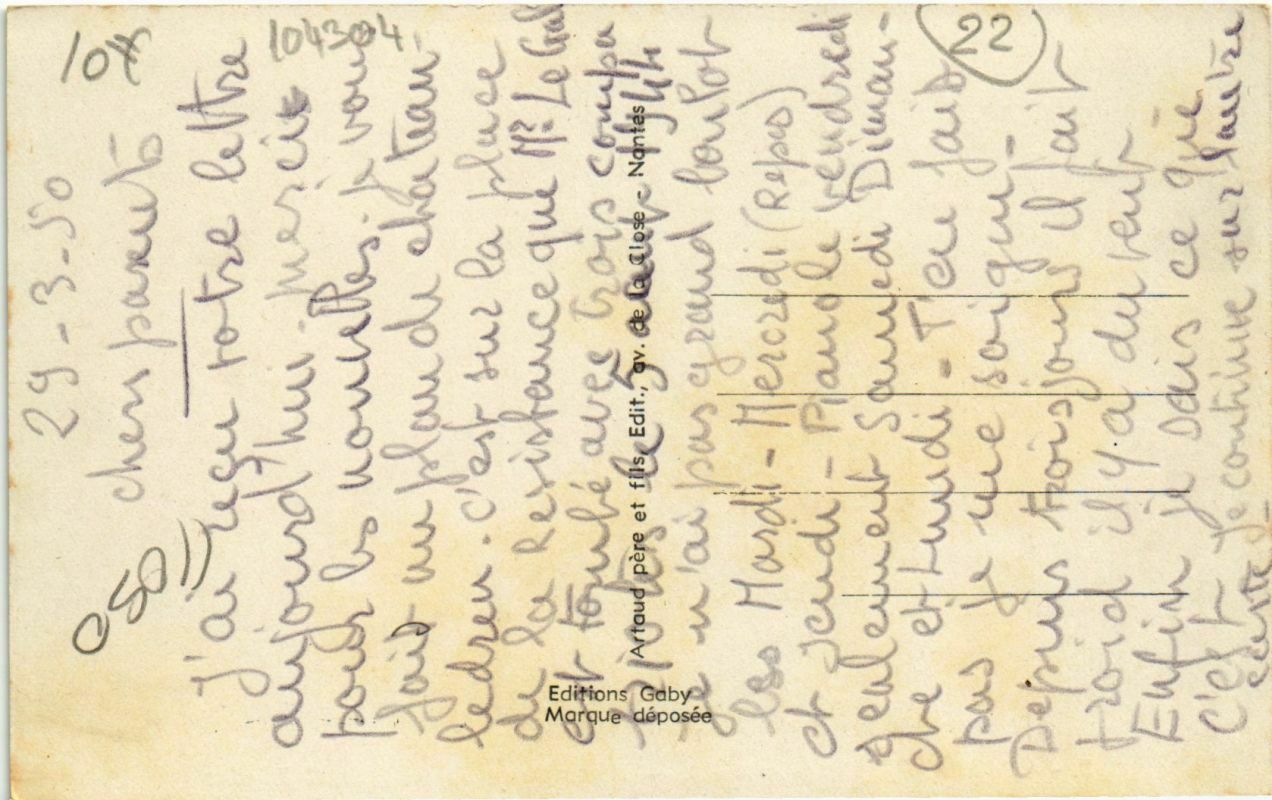 29-3-50
chers parents
J'ai reçu votre lettre
aujourd'hui. merci
pour les nouvelles. je vous
fais un plan de chateau
ledren. c'est sur la place
de la Resistance que Mr Le Gal
est tombé avec trois
le 5 août 1944
Je n'ai pas grand boulot
les Mardi - Mercredi (Repos)
et jeudi - Piausole vendredi
egalement Samedi Diman-
che et Lundi - T'en fais
pas je me soigne -
Depuis trois jours il fait
froid il y a du vent
Enfin je sais ce que
c'est je continue sur l'autre
carte
104
104304
22
050 //
Artaud père et fils, Edit., av. de la Close - Nantes
Editions Gaby
Marque déposée